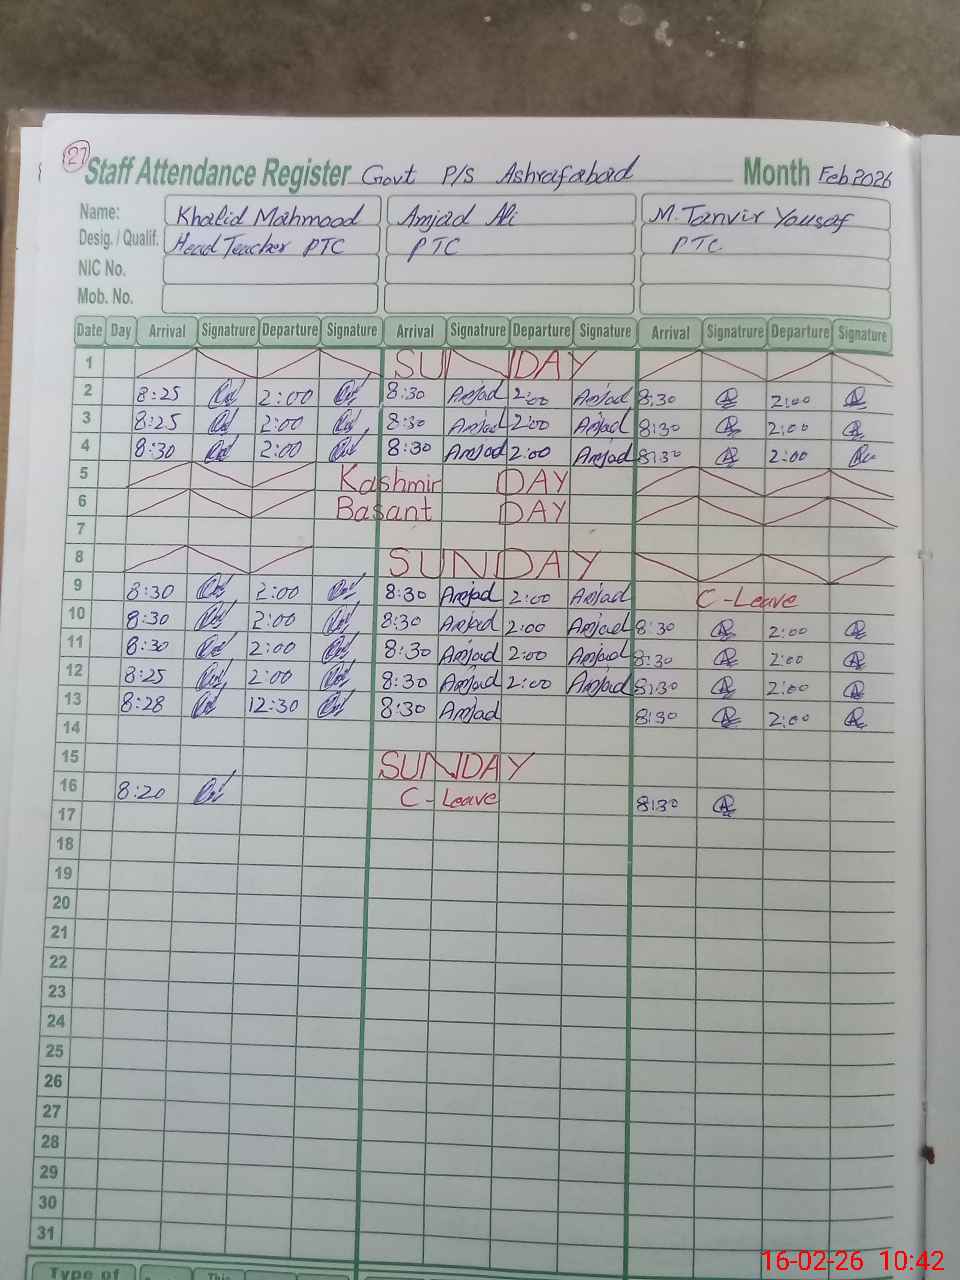 27
Staff Attendance Register Govt P/S Ashrafabad Month Feb 2026
Name: Khalid Mahmood Amjad Ali M. Tanvir Yousaf
Desig. / Qualif. Head Teacher PTC PTC PTC
NIC No.
Mob. No.
Date Day Arrival Signatrure Departure Signature Arrival Signatrure Departure Signature Arrival Signatrure Departure Signature
1 SUNDAY
2 8:25 2:00 8:30 Amjad 2:00 Amjad 8:30 2:00
3 8:25 2:00 8:30 Amjad 2:00 Amjad 8:30 2:00
4 8:30 2:00 8:30 Amjad 2:00 Amjad 8:30 2:00
5 Kashmir DAY
6 Basant DAY
7
8 SUNDAY
9 8:30 2:00 8:30 Amjad 2:00 Amjad C-Leave
10 8:30 2:00 8:30 Amjad 2:00 Amjad 8:30 2:00
11 8:30 2:00 8:30 Amjad 2:00 Amjad 8:30 2:00
12 8:25 2:00 8:30 Amjad 2:00 Amjad 8:30 2:00
13 8:28 12:30 8:30 Amjad 8:30 2:00
14
15 SUNDAY
16 8:20 C-Leave 8:30
17
18
19
20
21
22
23
24
25
26
27
28
29
30
31
Type of This
16-02-26 10:42